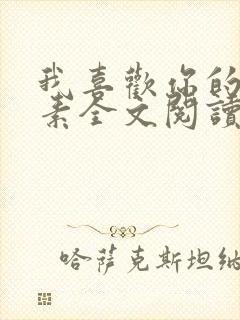 我喜歡你的
素全文閱讀
哈薩克斯坦